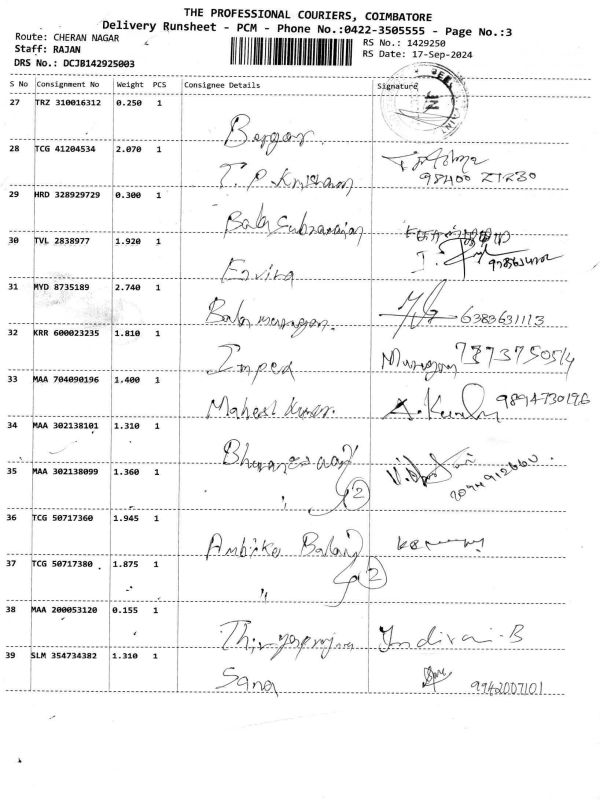 THE PROFESSIONAL COURIERS, COIMBATORE
Delivery Runsheet - PCM - Phone No.:0422-3505555 - Page No.:3
Route: CHERAN NAGAR
RS No.: 1429250
Staff: RAJAN
RS Date: 17-Sep-2024
DRS No.: DCJB142925003
S No Consignment No Weight PCS Consignee Details Signature
27 TRZ 310016312 0.250 1
28 TCG 41204534 2.070 1 T. P. Krishnan
29 HRD 328929729 0.300 1 Bala Subramanian
30 TVL 2838977 1.920 1
31 MYD 8735189 2.740 1 Balamurugan. 6383631113
32 KRR 600023235 1.810 1 Murugan
33 MAA 704090196 1.400 1 Mahesh Kumar. 9894730196
34 MAA 302138101 1.310 1
35 MAA 302138099 1.360 1 " 2
36 TCG 50717360 1.945 1 Ambika Balaji
37 TCG 50717380 1.875 1 " 2
38 MAA 200053120 0.155 1 Indirani-B
39 SLM 354734382 1.310 1 Sana 9942007101